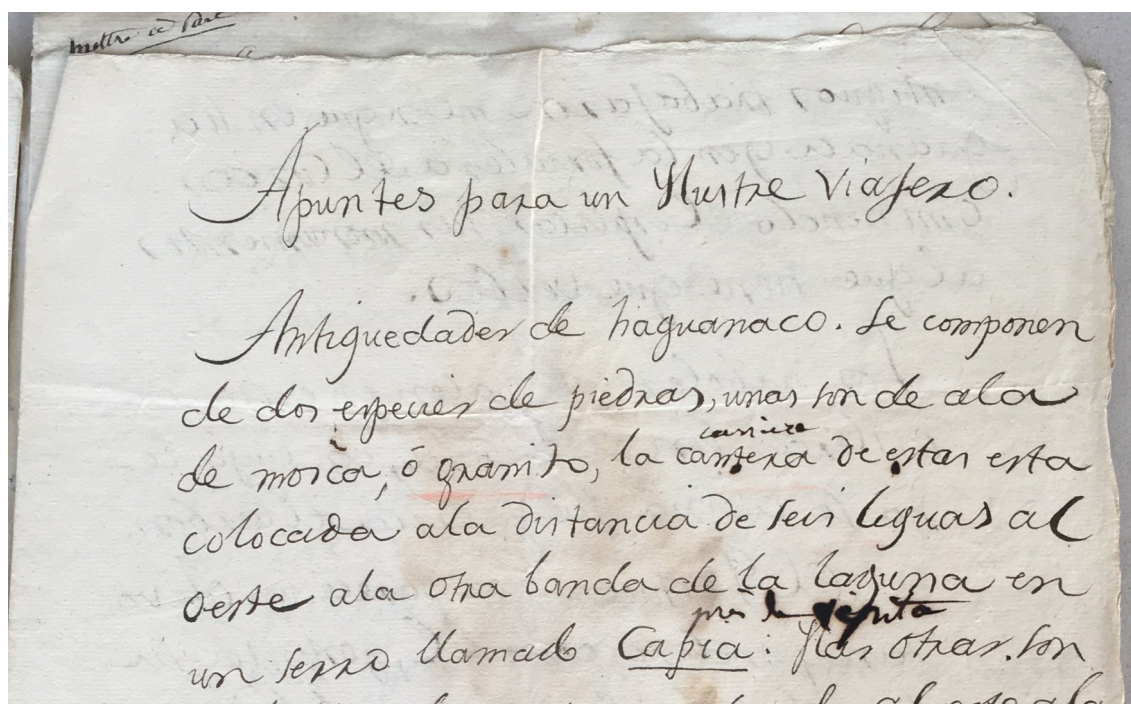 mettre à part
Apuntes para un Ylustre Viajero.
Antiguedades de tiaguanaco. Se componen
de dos especies de piedras, unas son de ala
de mosca, ó granito, la cantera de estas esta
carriere
colocada ala distancia de seis leguas al
oeste ala otra banda de la laguna en
pres de
un serro llamado Capia: Las otras son